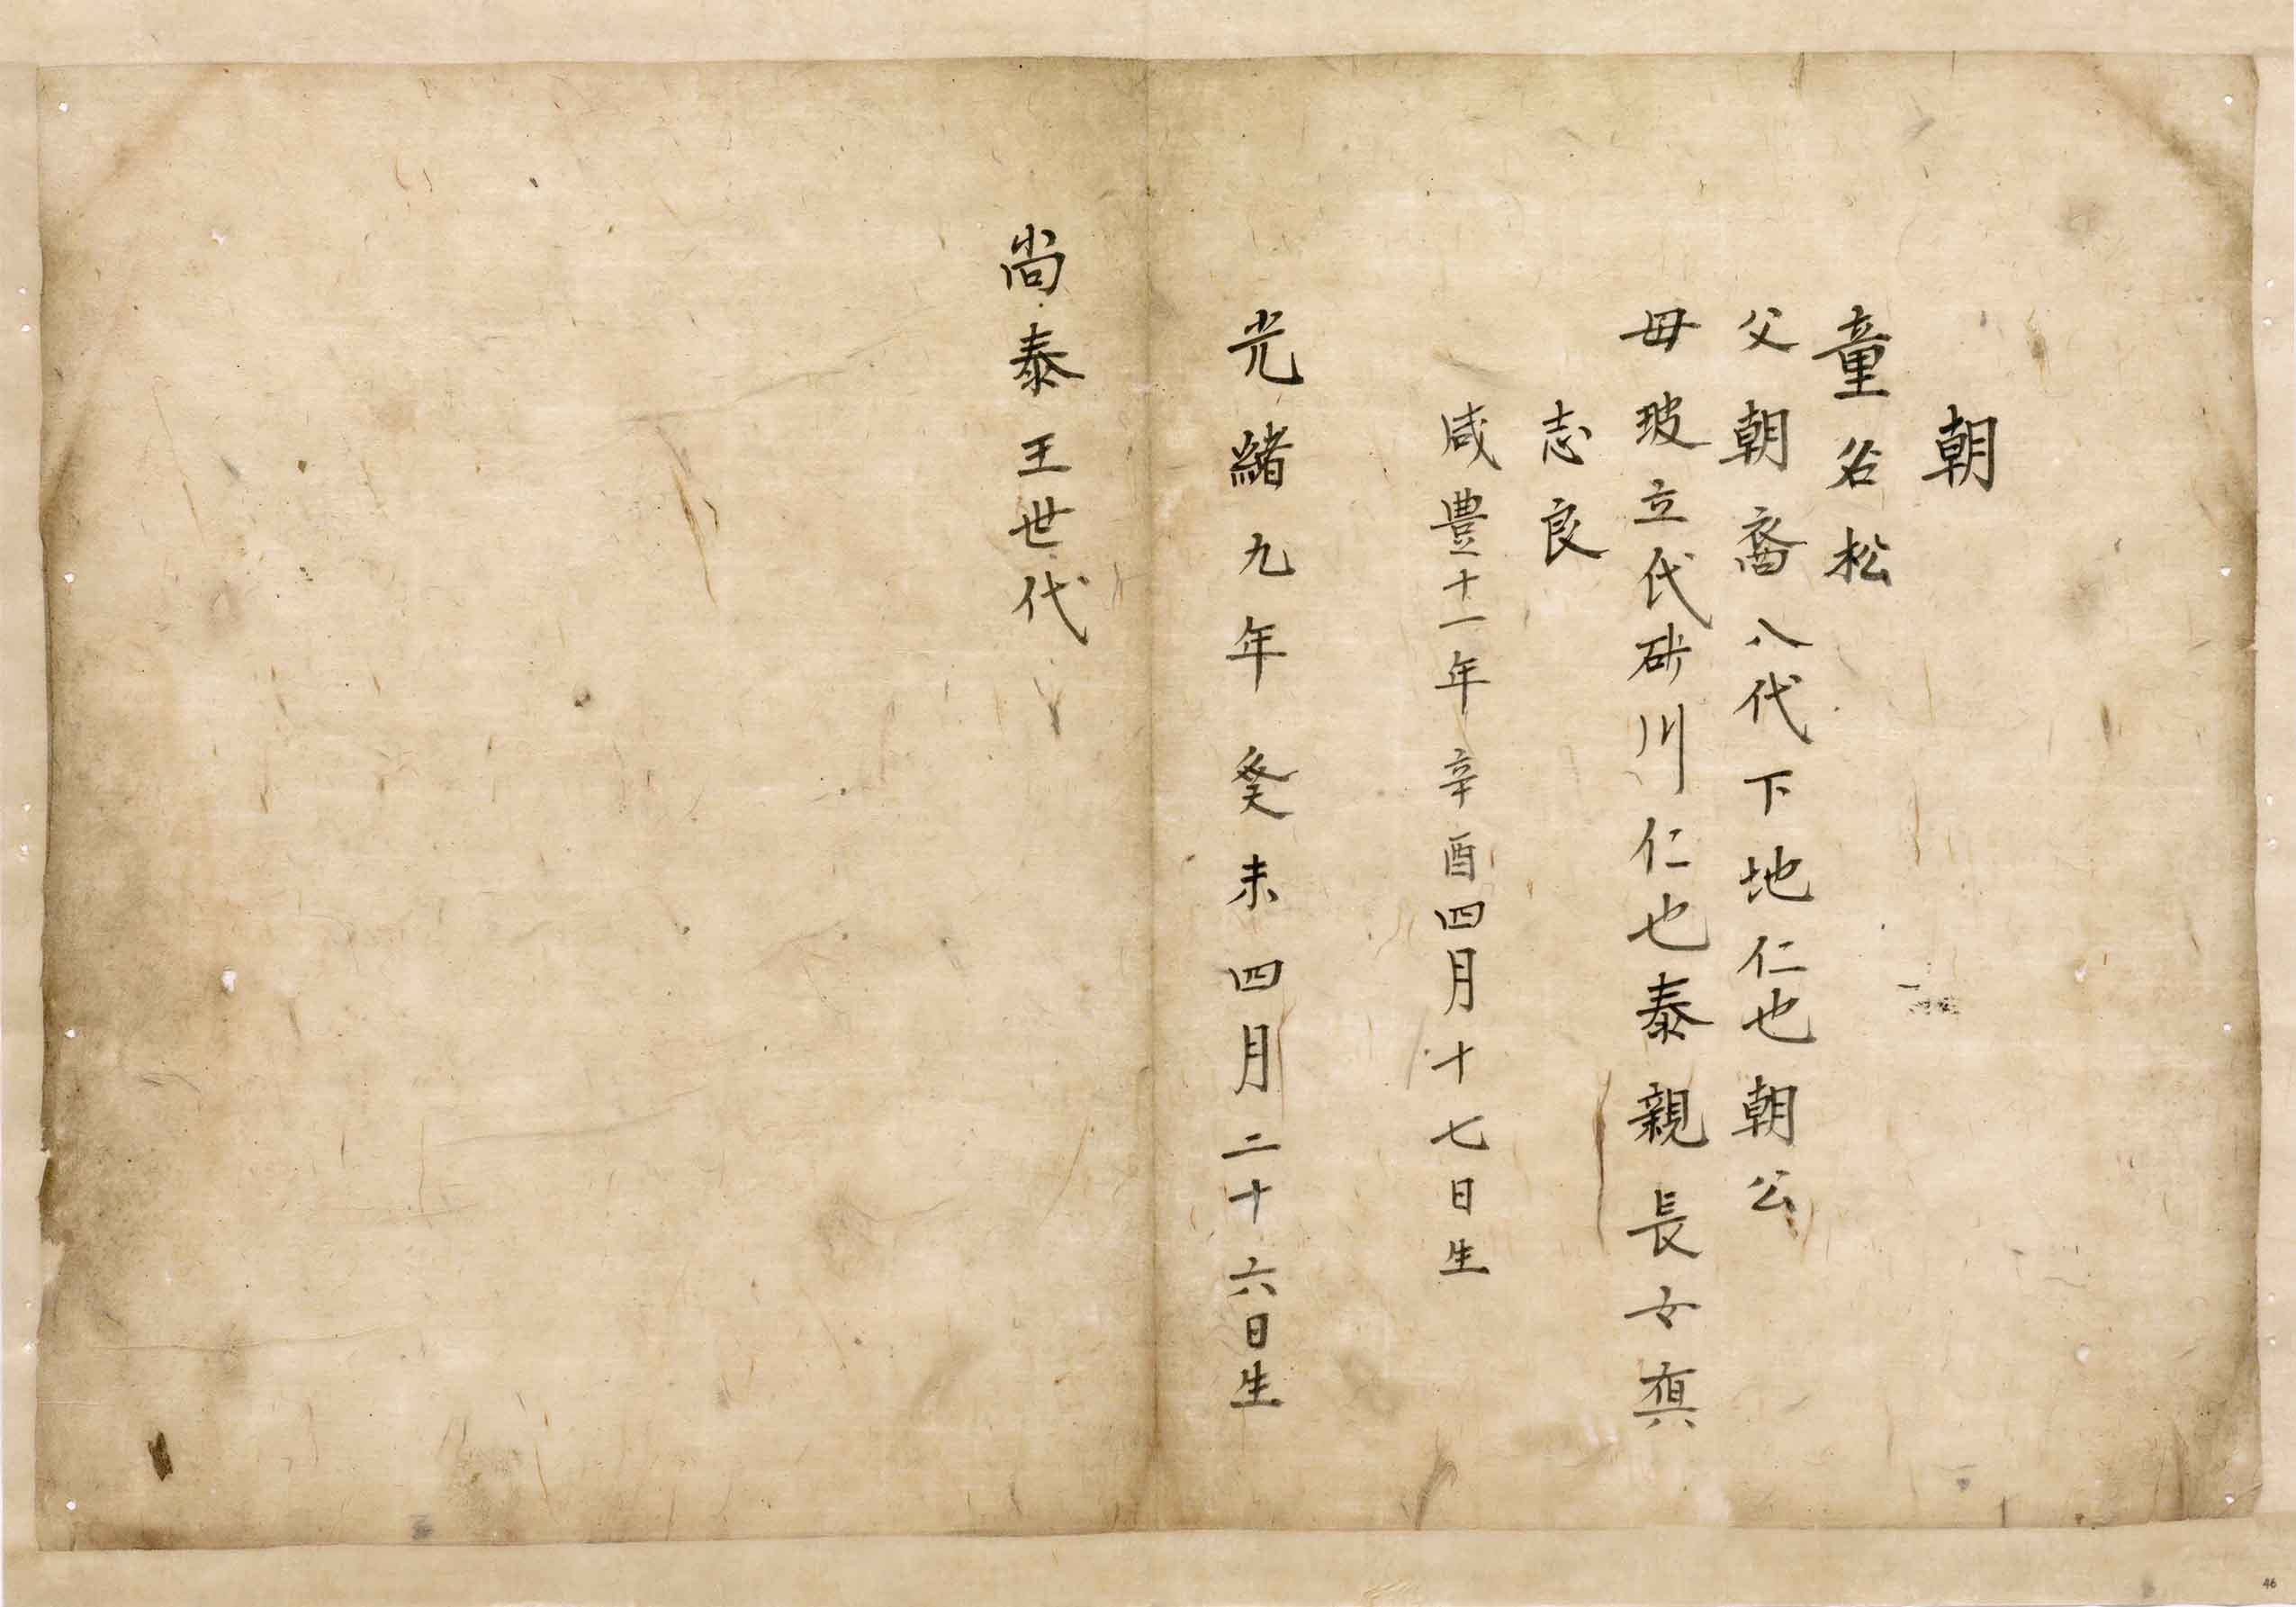 朝
童名松
父朝裔八代下地仁也朝公
母玻立氏砕川仁也泰親長女真
志良
咸豊十一年辛酉四月十七日生
光緒九年癸未四月二十六日生
尚泰王世代
46